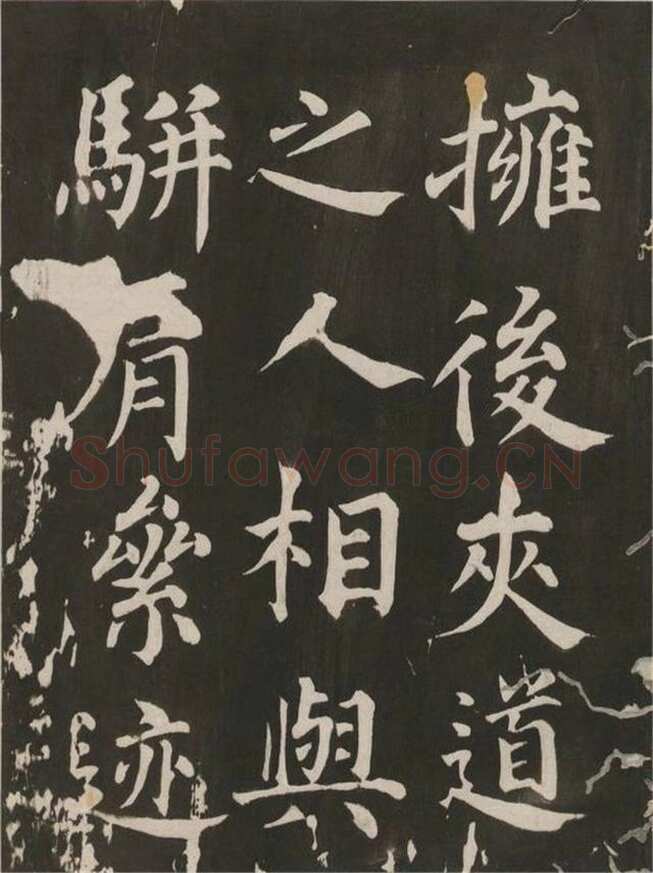 擁後夾道
之人相與
駢肩纍迹
Shufawang.CN